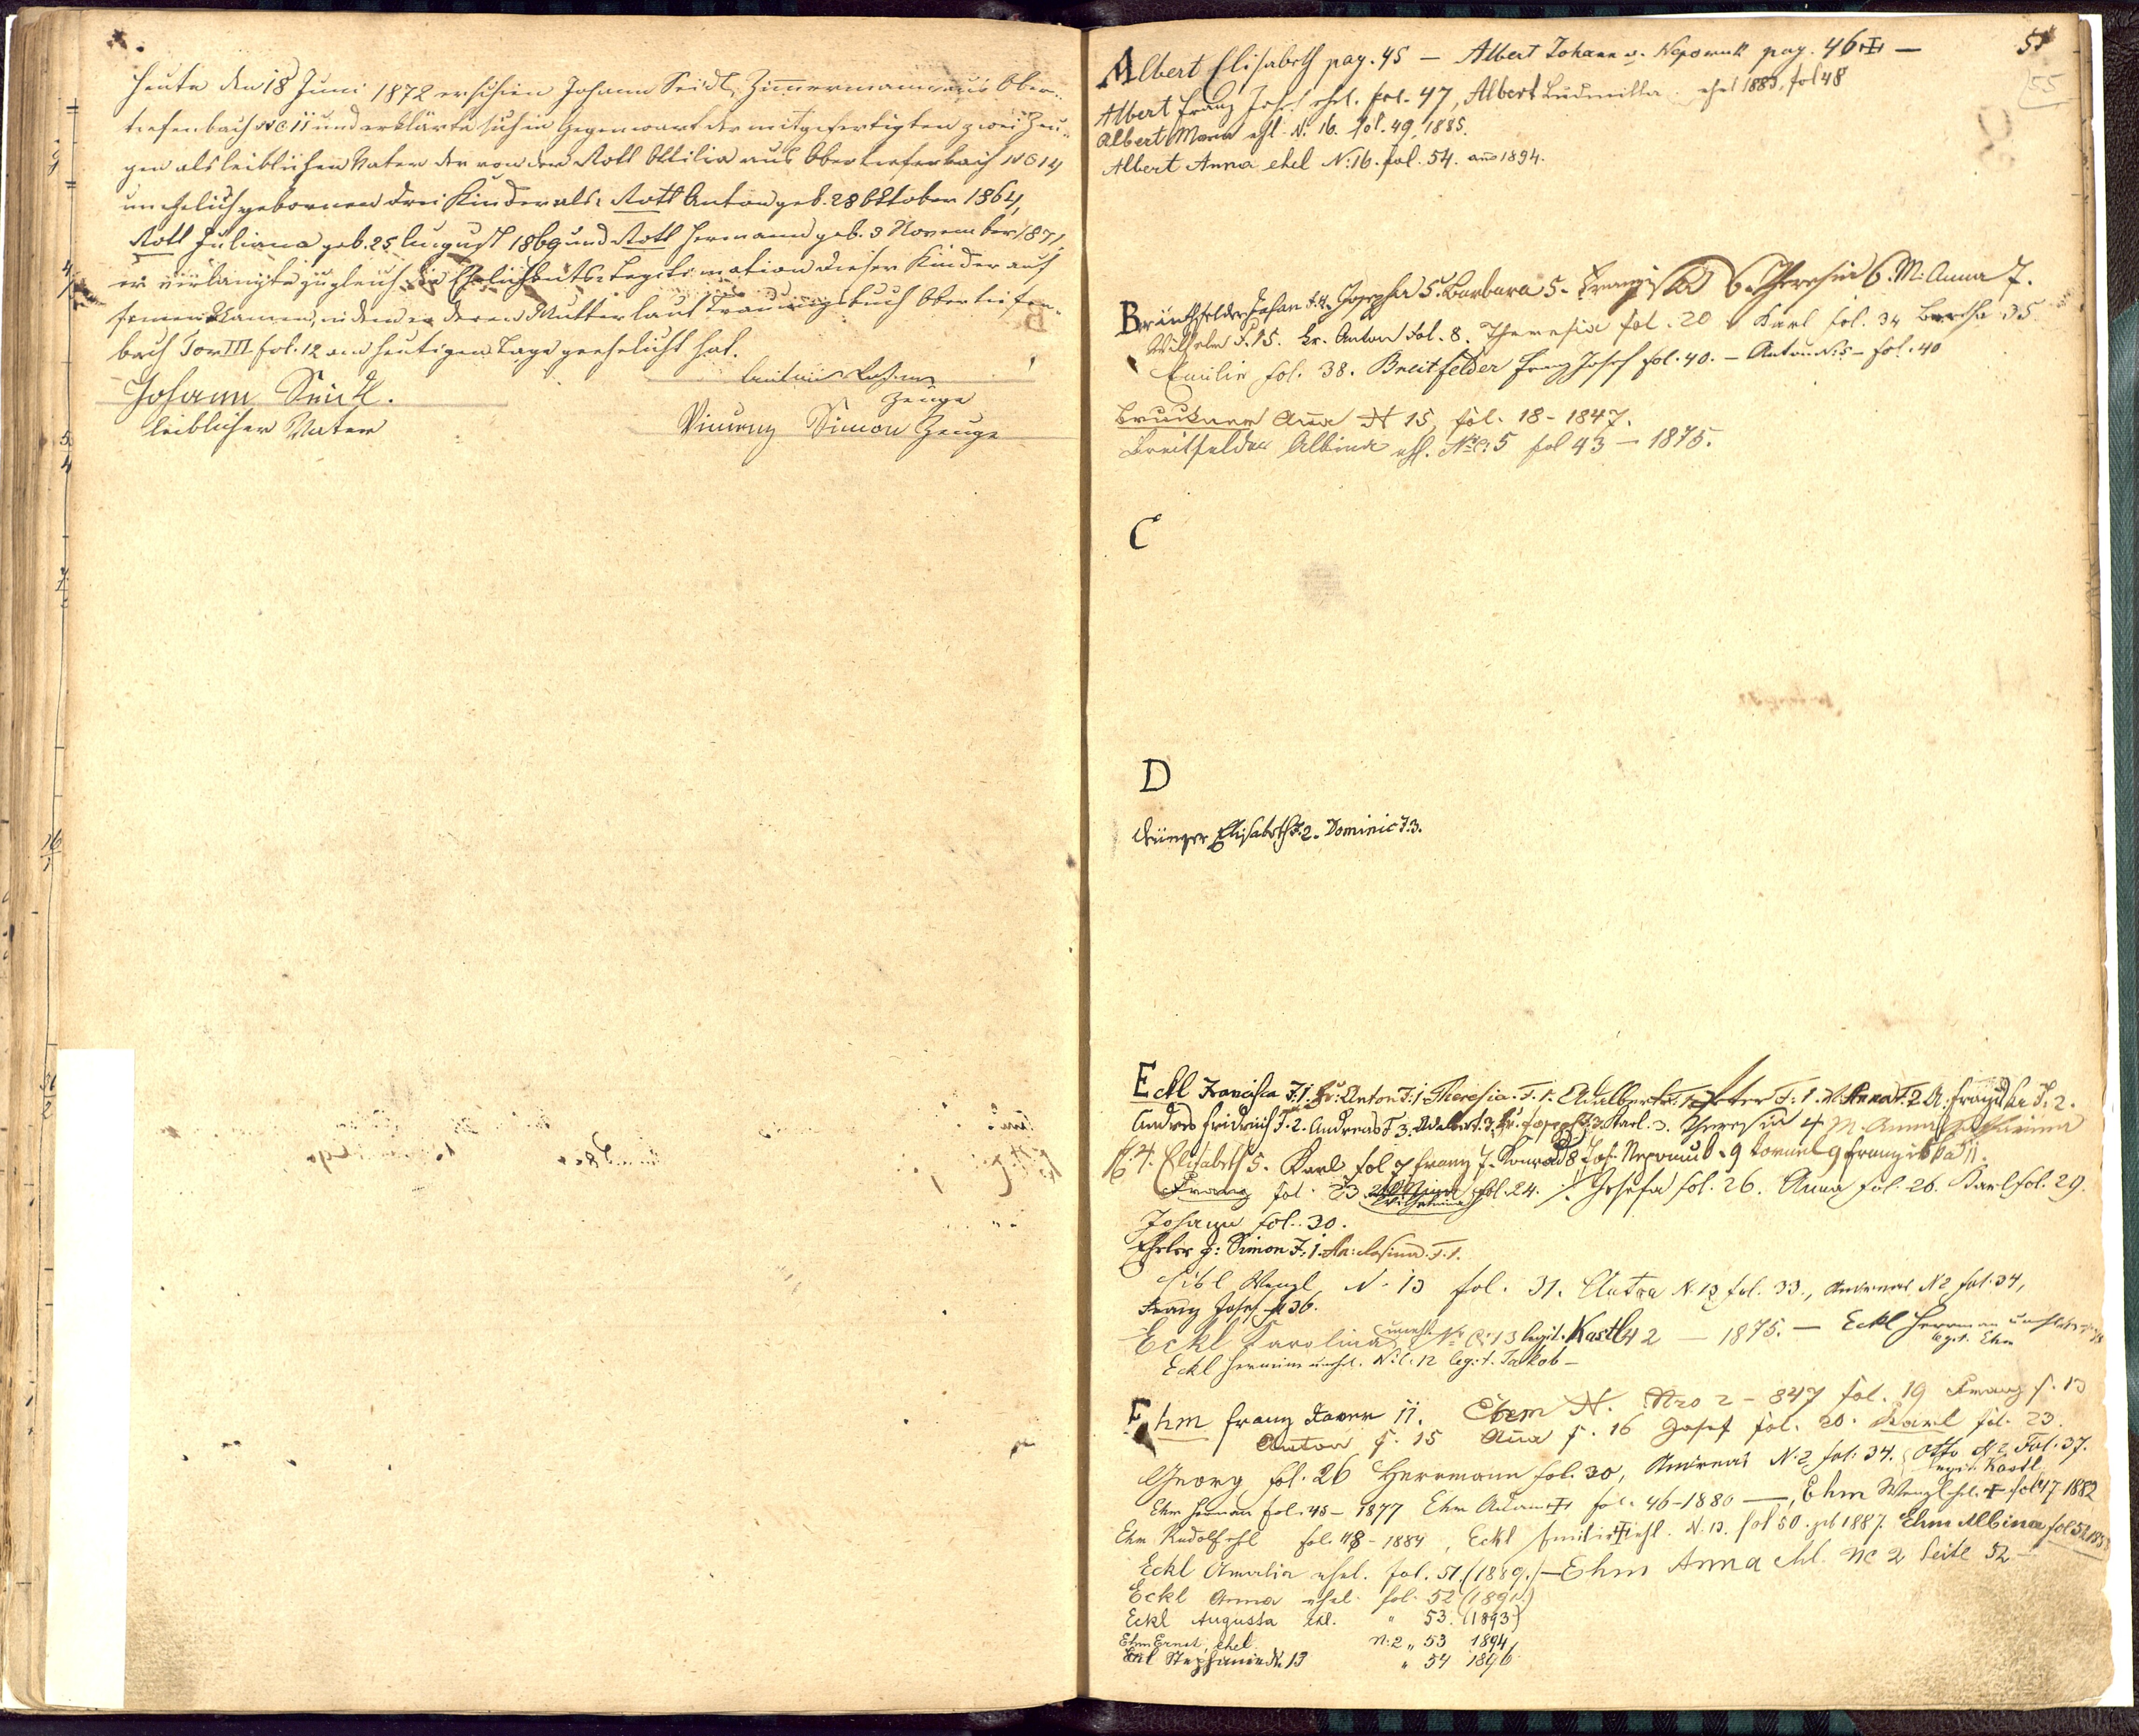 Heute den 18 Juni 1872 erschien Johann Seidl, Zimmermann aus Ober-
tiefenbach NC 11 und erklärte sich in Gegenwart der mitgefertigten zwei Zeu-
gen als leiblichen Vater der von der Rott Ottilia aus Obertiefenbach NC 14
unehelich gebornen drei Kinder als: Rott Anton geb. 28 Oktober 1864,
Rott Juliana geb. 25 August 1869 und Rott Hermann geb. 3 November 1871,
er verlangte zugleich die Ehelichkeits-Legitimation dieser Kinder auf
seinen Namen, indem er deren Mutter laut Trauungsbuch Obertiefen-
bach Tom III fol. 12 am heutigen Tage geehelicht hat.
Johann Seidl.
leiblicher Vater
Zeuge
Vincenz Simon Zeuge
51
55
Albert Elisabeth pag. 45 — Albert Johann v. Nepomuk pag. 46 —
Albert Franz Josef ehel. fol. 47, Albert Ludmilla ehel 1883, fol 48
Albert Maria ehl. N. 16. fol. 49, 1885.
Albert Anna ehel N: 16. fol. 54. ano 1894.
Josepha 5. Barbara 5. Franziska 6. Theresia 6. M: Anna 7.
Wilhelm F. 15. Fr. Anton Fol. 8. Theresia fol. 20 Karl fol. 34 Bertha 35
Emilie fol. 38. Breitfelder Franz Josef fol. 40. — Anton N: 5 — fol. 40
Bruckner Ana N 15, fol. 18 - 1847.
Breitfelder Albina ehl. NC: 5 fol 43 — 1875.
C
D
Elisabeth F. 2. Dominic F. 3.
Eckl Francisca F: 1. Fr: Anton F: 1. Theresia. F. 1. Adalbert F. 1. Peter F: 1. Anna F. 2. A. Franziska F. 2.
Andres Fridrich F. 2. Andreas F 3. Adalbert 3. Fr. Joseph F 3. Karl. 3. Theresia 4. M. Anna Katharina
F. 4. Elisabeth 5. Karl fol 7 Franz 7. Konrad 8 Joh. Nepomuk. 9 Kornel 9 Franziska 11.
Franz fol. 23 Wilhelmina fol. 24. Josefa fol. 26. Anna fol. 26. Karl fol. 29.
Johann fol. 30.
Simon F: 1. Rosina. F. 1.
Wenzl N. 13 fol. 31. N. 13 fol. 33., Andreas N 2 fol: 34,
Franz Josef 36.
Eckl Karolina unehl. NC: 13 legit. Kastl 42 — 1875. — Eckl Herrman
legit. Ehm
Eckl Hermine unehel. N: C: 12 legit. Jakob —
Ehm Franz Xaver 11. Ehem N. Nro 2 - 847 fol. 19 Franz f. 13
Anton f. 15 Ana f. 16 Josef fol. 20. Karl fol. 23.
Georg fol. 26 Herrmann fol. 30, Andreas N: 2 fol: 34. Otto N 2 Fol. 37.
legit. Kastl
Ehm Herman fol. 45 - 1877 Ehm Adam fol. 46 - 1880 —, Ehm Wenzl ehl. fol 47 1882
Ehm Rudolf ehl fol. 48 - 1884, Eckl Emilie ehl. N. 13. fol 50. geb 1887. Ehm Albina fol 52
Eckl Amalia ehel. fol. 51. (1889.) — Ehm Anna ehl. NC 2 Seite 52 —
Eckl Anna ehel. fol. 52 (1891.)
Eckl Augusta ehl. " 53. (1893)
Ehm Ernst, ehel. N: 2 " 53 1894
Eckl Stephanie N. 13 " 54 1896